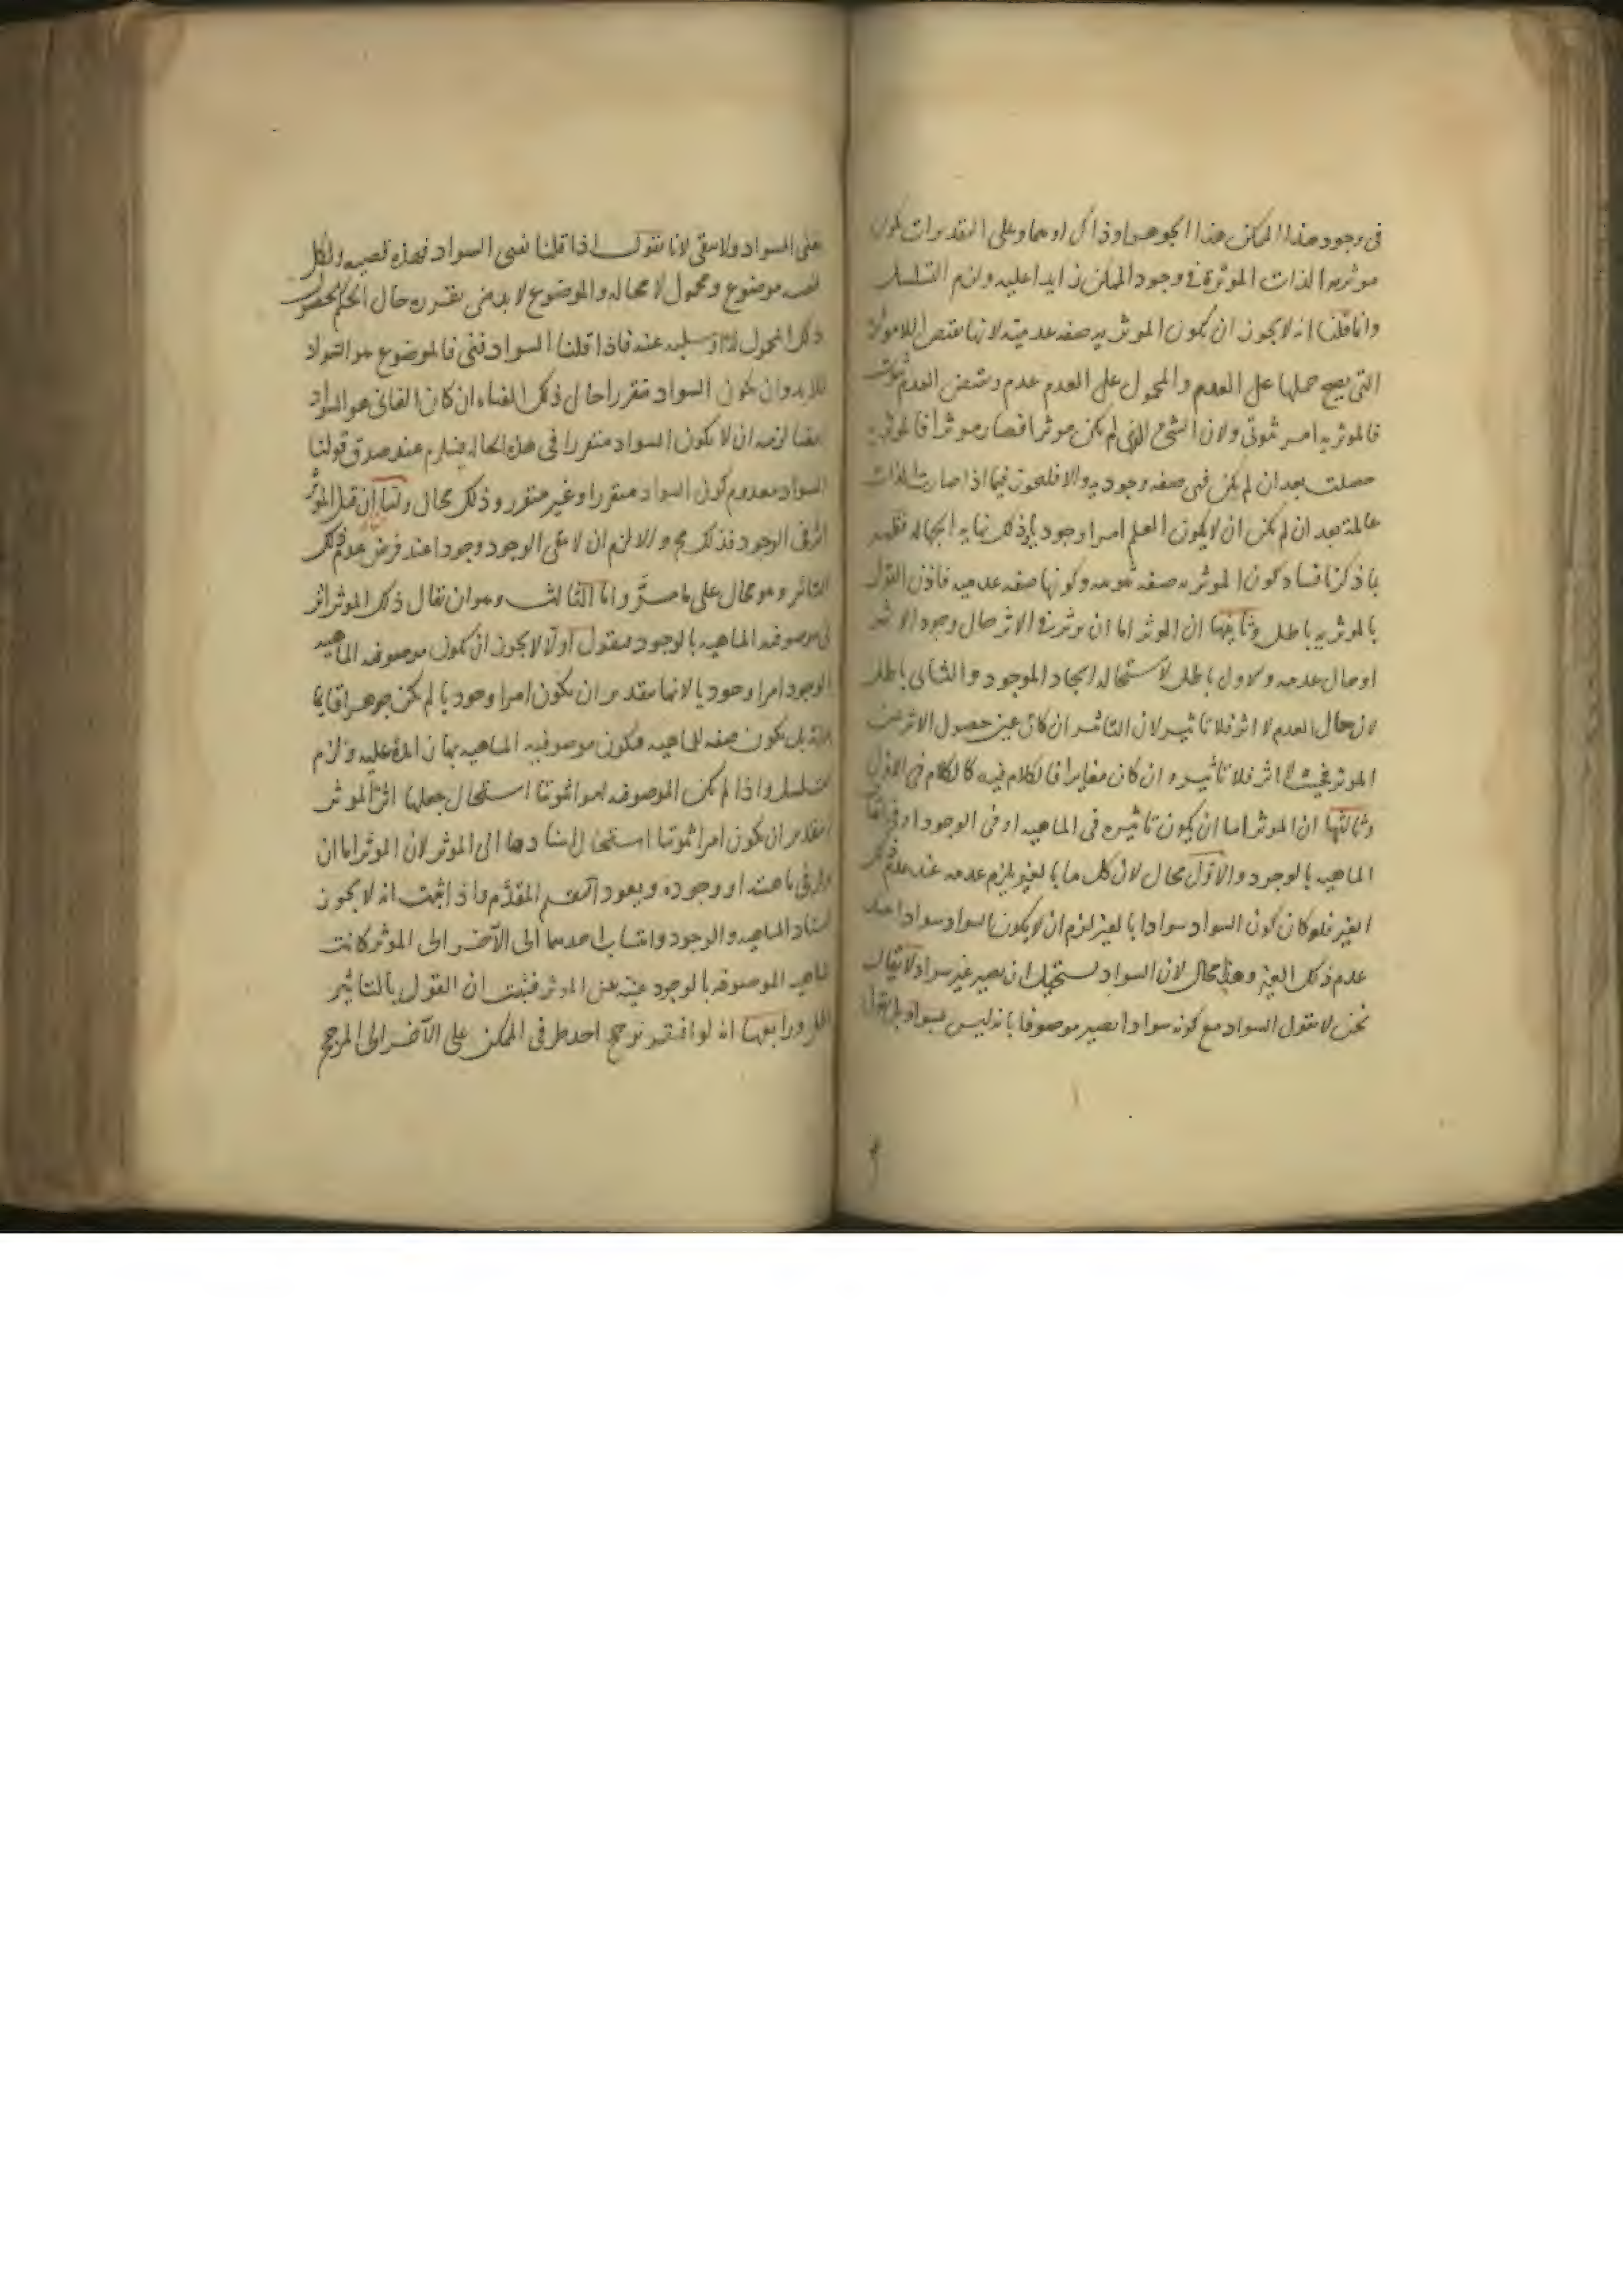 فى وجود هذا الممكن هذا الجوهر او ذاك او هما وعلى التقديرات يكون
موثريه الذات الموثرة فى وجود الممكن زايدا عليه ولزم التسلسل
وانا قلنا انه لا يجوز ان يكون الموثريه صفه عدميه لانها نقيض اللاموثريه
التى يصح حملها على العدم والمحمول على العدم عدم ونقيض العدم ثبوت
فالموثريه امر ثبوتى ولان الشئ الذى لم يكن موثرا فصار موثرا فالموثريه
حصلت بعد ان لم يكن فهى صفه وجوديه والا فلنجوز فيما اذا صارت الذات
عالمة بعد ان لم يكن ان لا يكون العلم امرا وجوديا وذلك نهايه الجهاله فظهر
بما ذكرنا فساد كون الموثريه صفه ثبوتيه وكونها صفه عدميه فاذن القول
بالموثريه باطل وثانيها ان الموثر اما ان يوثر فى الاثر حال وجود الاثر
او حال عدمه والاول باطل لاستحاله ايجاد الموجود والثانى باطل
لان حال العدم لا اثر فلا تاثير لان التاثير ان كان عين حصول الاثر عن
الموثر فحيث لا اثر فلا تاثير وان كان مغايرا فالكلام فيه كالكلام فى الاول
وثالثها ان الموثر اما ان يكون تاثيره فى الماهيه او فى الوجود او فى اتصاف
الماهيه بالوجود والاول محال لان كل ما بالغير يلزم عدمه عند عدم ذلك
الغير فلو كان كون السواد سوادا بالغير لزم ان لا يكون السواد سوادا عند
عدم ذلك الغير وهذا محال لان السواد يستحيل ان يصير غير سواد لا يقال
نحن لا نقول السواد مع كونه سوادا يصير موصوفا بانه ليس بسواد بل نقول
يفنى السواد ولا يبقى لانا نقول اذا قلنا نفى السواد فهذه قضيه ولكل
قضيه موضوع ومحمول لا محاله والموضوع لا بد من تقرره حال الحكم بحصول
ذلك المحمول له او سلبه عنه فاذا قلنا السواد فنى فالموضوع هو السواد
فلا بد وان يكون السواد متقررا حال ذلك الفناء ان كان الفانى هو السواد
ايضا لزمه ان لا يكون السواد متقررا فى هذه الحاله فيلزم عند صدق قولنا
السواد معدوم كون السواد متقررا وغير متقرر وذلك محال واما ان قيل الموثر
اثر فى الوجود فذلك مح والا لزم ان لا يبقى الوجود وجودا عند فرض عدم ذلك
التاثير وهو محال على ما مر واما الثالث وهو ان يقال ذلك الموثر اثر
فى موصوفيه الماهيه بالوجود فنقول اولا لا يجوز ان يكون موصوفيه الماهيه
بالوجود امرا وجوديا لانها بتقدير ان يكون امرا وجوديا لم يكن جوهرا قايما
بذاته بل يكون صفه للماهيه فيكون موصوفيه الماهيه بها زايدة عليه ولزم
التسلسل واذا لم يكن الموصوفيه امرا ثبوتيا استحال جعلها اثر الموثر
وبتقدير ان يكون امرا ثبوتيا استحال اسنادها الى الموثر لان الموثر اما ان
يوثر فى ماهيته او وجوده ويعود التقسيم المقدم واذ اثبت انه لا يجوز
اسناد الماهيه والوجود وانتساب احدهما الى الآخر الى الموثر كانت
الماهيه الموصوفه بالوجود غنيه عن الموثر فثبت ان القول بالتاثير
باطل ورابعها انه لو افتقر ترجح احد طرفى الممكن على الآخر الى المرجح